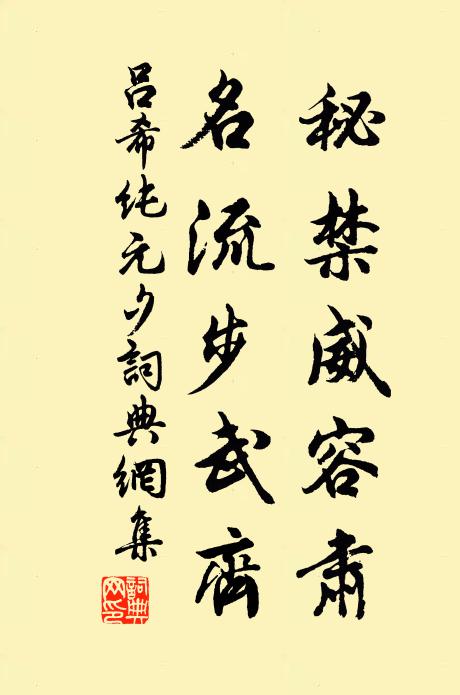 秘禁威容肅
名流步武齊
吕希纯元夕詞典網集
詞典网印